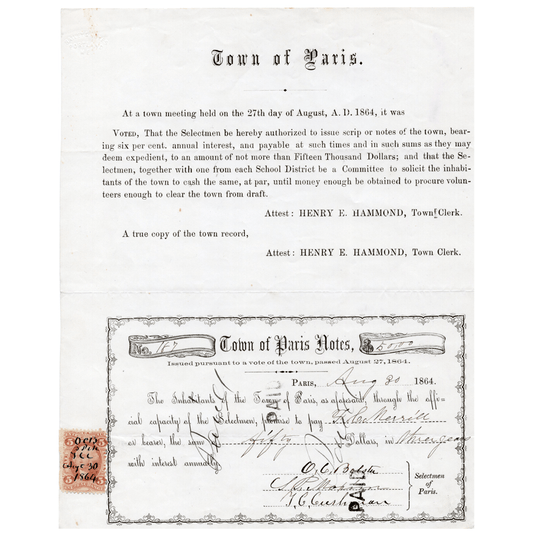 Town of Paris.
At a town meeting held on the 27th day of August, A. D. 1864, it was
VOTED, That the Selectmen be hereby authorized to issue scrip or notes of the town, bear-
ing six per cent. annual interest, and payable at such times and in such sums as they may
deem expedient, to an amount of not more than Fifteen Thousand Dollars; and that the Se-
lectmen, together with one from each School District be a Committee to solicit the inhabi-
tants of the town to cash the same, at par, until money enough be obtained to procure volun-
teers enough to clear the town from draft.
Attest: HENRY E. HAMMOND, Town Clerk.
A true copy of the town record,
Attest: HENRY E. HAMMOND, Town Clerk.
No. 187 Town of Paris Notes, $ 50.00
Issued pursuant to a vote of the town, passed August 27, 1864.
PARIS, Aug 30 1864.
The Inhabitants of the Town of Paris, as aforesaid, through the offi-
cial capacity of the Selectmen, promise to pay T. C. Merrill
or bearer, the sum of fifty Dollars, in three years
with interest annually.
PAID
PAID
O. C.
S. R.
T. C. Cushman
Selectmen
of
Paris.
5 5
Aug 30
1864